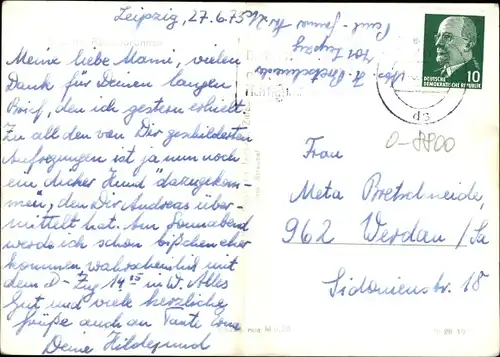 Leipzig, 27.6.75
Meine liebe Mami, vielen
Dank für Deinen langen
Brief, den ich gestern erhielt.
Zu all den von Dir geschilderten
Aufregungen ist ja nun noch
ein "dicker Hund" dazugekom-
men, den Dir Andreas über-
mittelt hat. Am Sonnabend
werde ich schon bißchen eher
kommen wahrscheinlich mit
dem D-Zug 14 in W. Alles
Gut und viele herzliche
Grüße auch an Tante
Deine Hildegund
H. Bretschneider
701 Leipzig
10
DEUTSCHE
DEMOKRATISCHE REPUBLIK
0-8800
Frau
Meta Bretschneider,
962 Werdau/Sa
Sidonienstr. 18